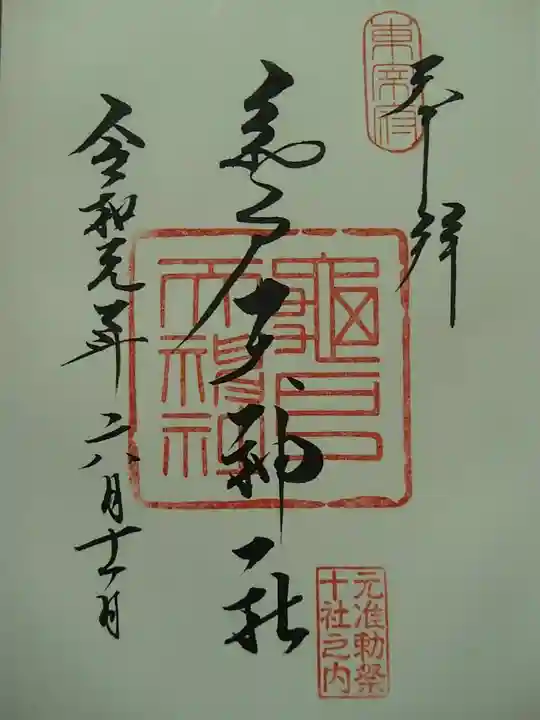 東宰府
奉拝
亀戸天神社
龜戸
天神社
令和元年六月十一日
元准勅祭
十社之内